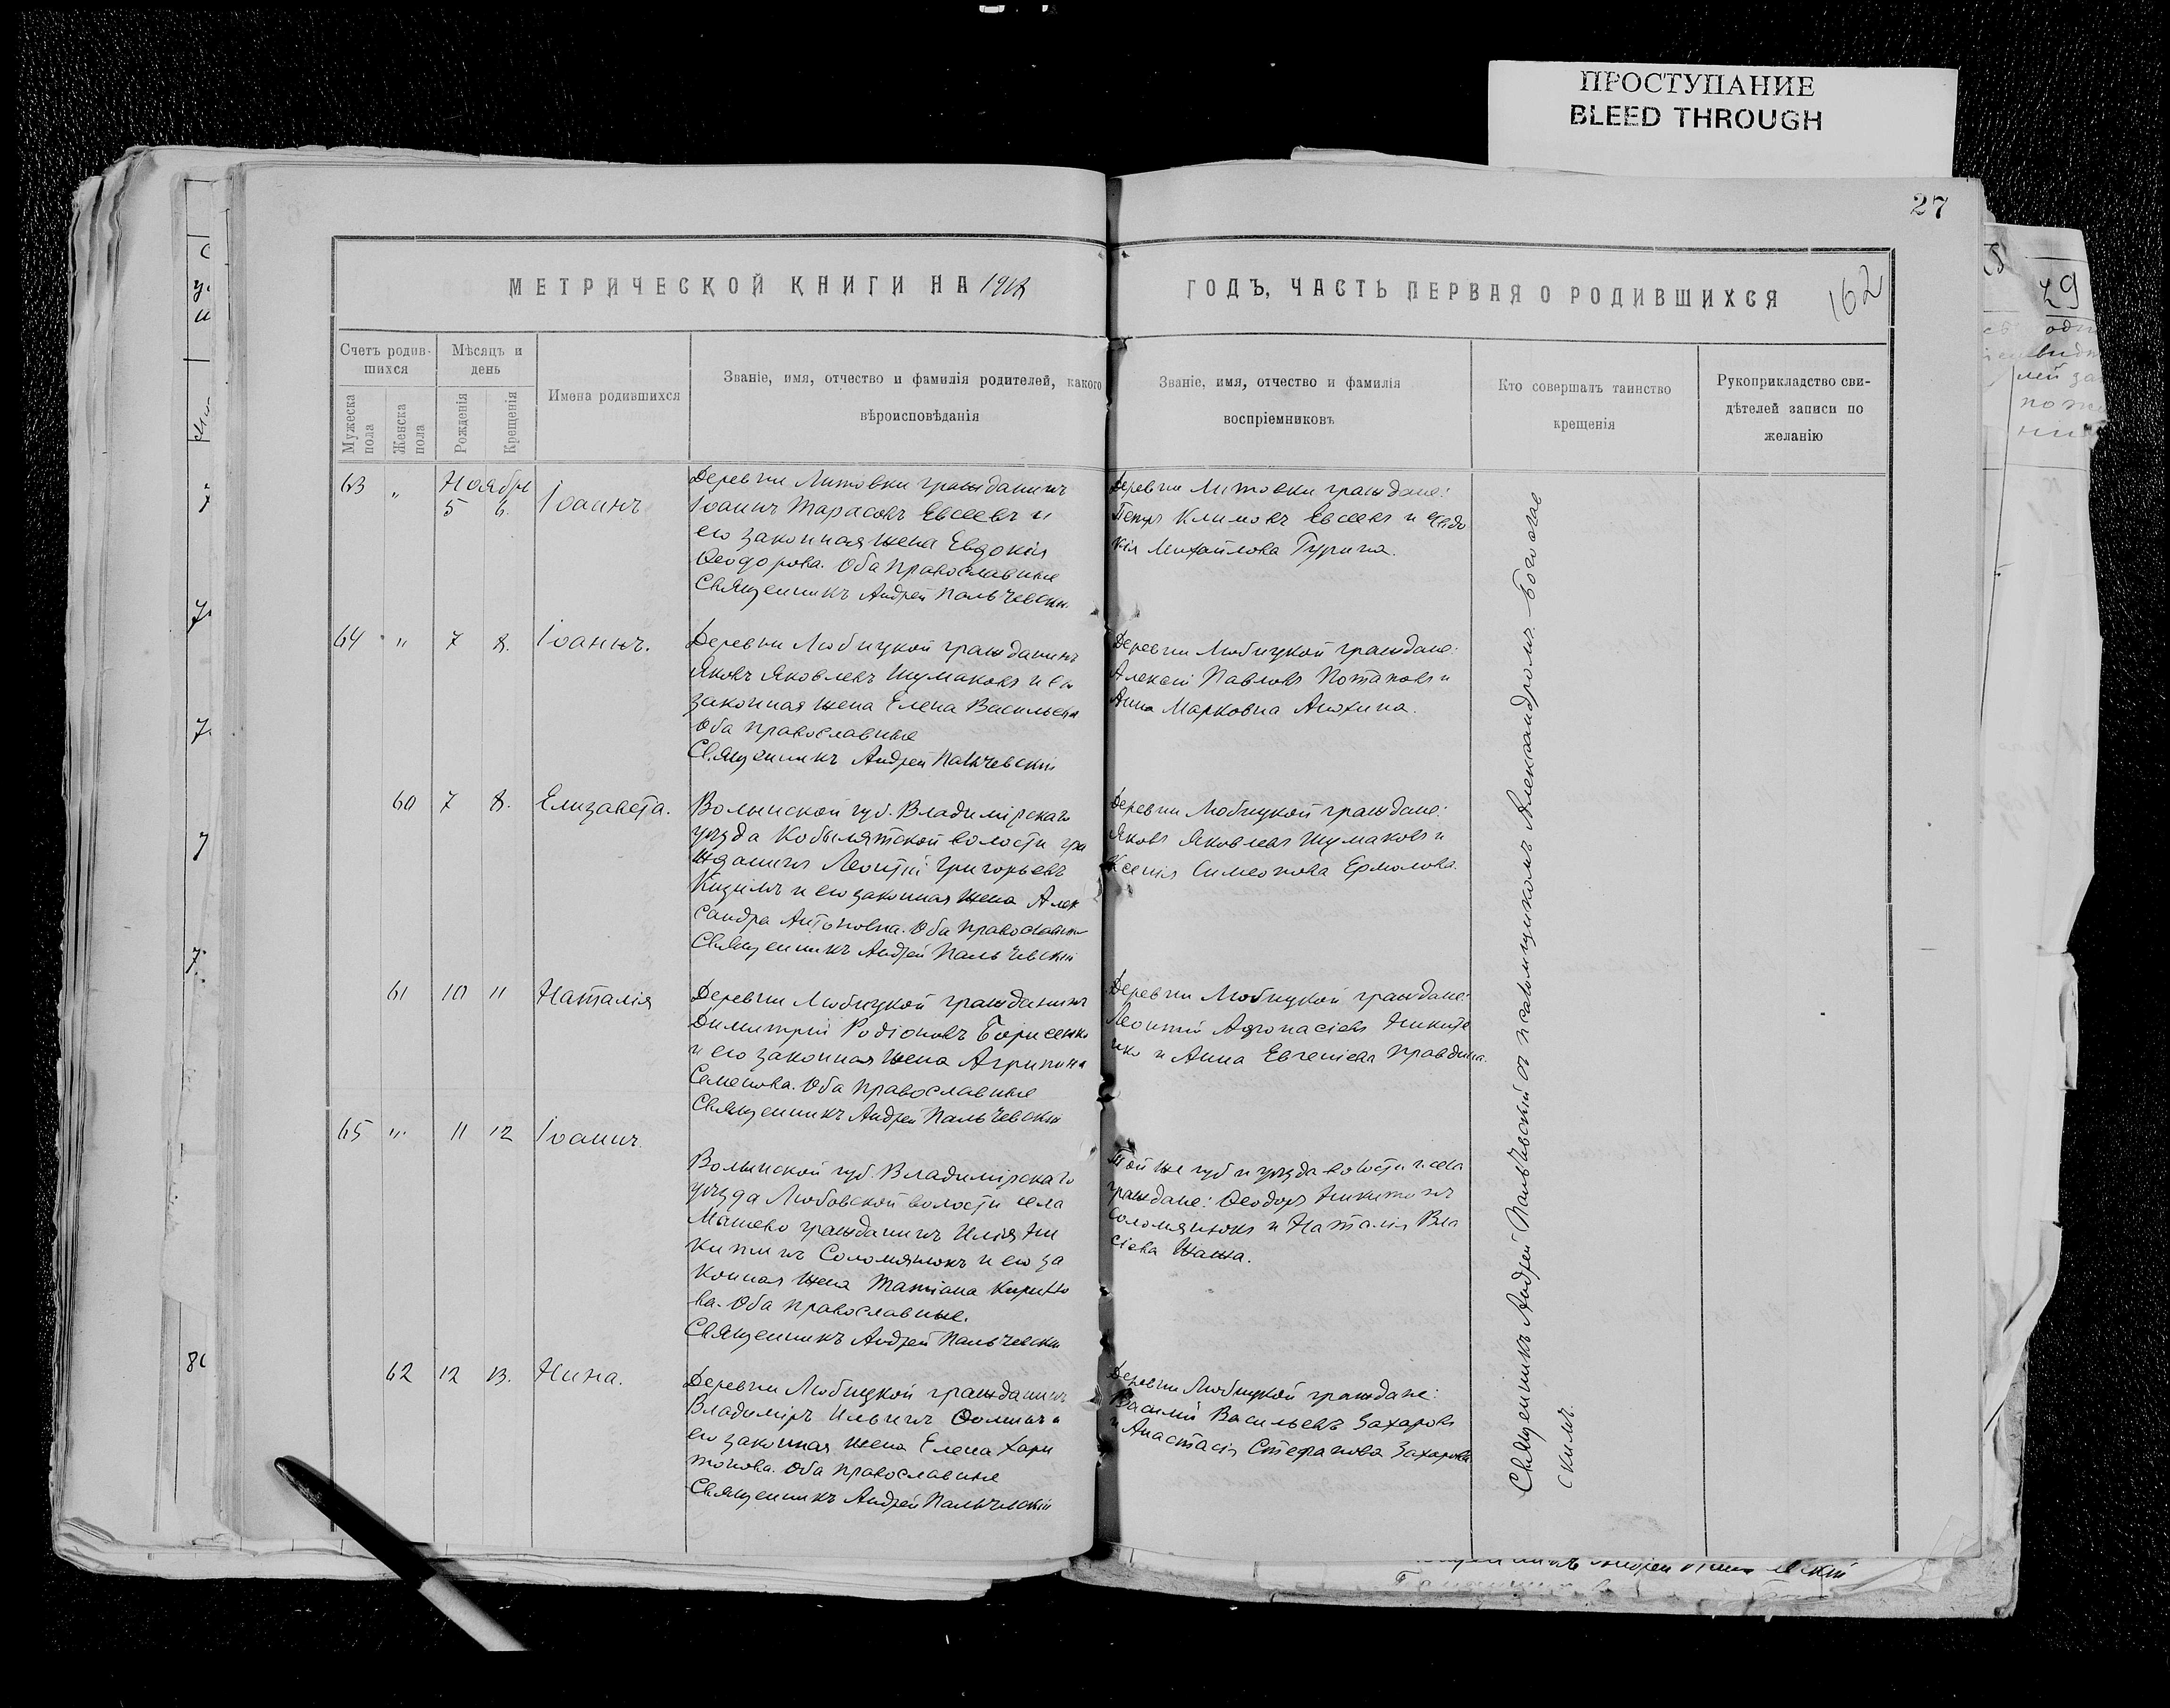 ПРОСТУПАНИЕ
BLEED THROUGH
27
МЕТРИЧЕСКОЙ КНИГИ НА 1918
ГОДЪ, ЧАСТЬ ПЕРВАЯ О РОДИВШИХСЯ
162
Счетъ родив-
шихся
Мѣсяцъ и
день
Мужеска
пола
Женска
пола
Рожденія
Крещенія
Имена родившихся
Званіе, имя, отчество и фамилія родителей, какого
вѣроисповѣданія
Званіе, имя, отчество и фамилія
воспріемниковъ
Кто совершалъ таинство
крещенія
Рукоприкладство сви-
дѣтелей записи по
желанію
63 " Ноябрь
5 6. Іоаннъ
Деревни Литовки гражданинъ
Іоаннъ Тарасовъ Евсеевъ и
его законная жена Евдокія
Ѳеодорова. Оба православные
Священникъ Андрей Пальчевскій
Деревни Литовки граждане:
Петръ Климовъ Евсеевъ и Евдо
кія Михайлова Гурина.
64 " 7 8. Іоаннъ.
Деревни Любицкой гражданинъ
Яковъ Яковлевъ Шумаковъ и его
законная жена Елена Васильева
Оба православные
Священникъ Андрей Пальчевскій
Деревни Любицкой граждане:
Алексій Павловъ Потаповъ и
Анна Марковна Анохина.
60 7 8. Елизавета.
Волынской губ. Владимірскаго
уѣзда Кобылятской волости гра
жданинъ Леонтій Григорьевъ
и его законная жена Алек
сандра Антоновна. Оба православные
Священникъ Андрей Пальчевскій
Деревни Любицкой граждане:
Яковъ Яковлевъ Шумаковъ и
Ксенія Симеонова Ермолова.
61 10 11 Наталія
Деревни Любицкой гражданинъ
Димитрій Родіоновъ Борисенко
и его законная жена Агрипина
Семенова. Оба православные
Священникъ Андрей Пальчевскій
Деревни Любицкой граждане:
Леонтій Афонасіевъ Никите
нко и Анна Евгеніева Правдина.
65 " 11 12 Іоаннъ.
Волынской губ. Владимірскаго
уѣзда Любовской волости села
Машево гражданинъ Илія Ни
китинъ Соломянюкъ и его за
конная жена Татіана Кирилло
ва. Оба православные.
Священникъ Андрей Пальчевскій
Той же губ и уѣзда волости и села
граждане: Ѳеодоръ Никитинъ
Соломянюкъ и Наталія Вла
сіева
62 12 13. Нина.
Деревни Любицкой гражданинъ
Владиміръ Ильинъ Ѳоминъ и
его законная жена Елена Хари
тонова. Оба православные
Священникъ Андрей Пальчевскій
Деревни Любицкой граждане:
Василій Васильевъ Захаровъ
и Анастасія Стефанова Захарова
Священникъ Андрей Пальчевскій съ псаломщикомъ Александромъ Богослав
скимъ.